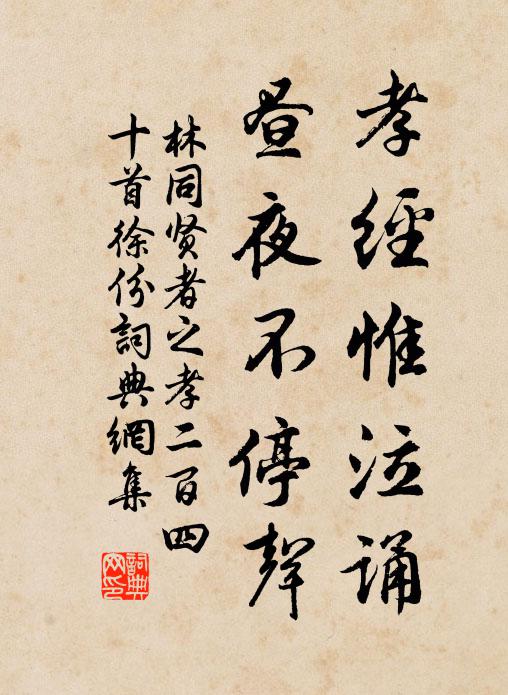 孝經惟泣誦
昼夜不停聲
林同贤者之孝二百四
十首徐份詞典網集
詞典
网印